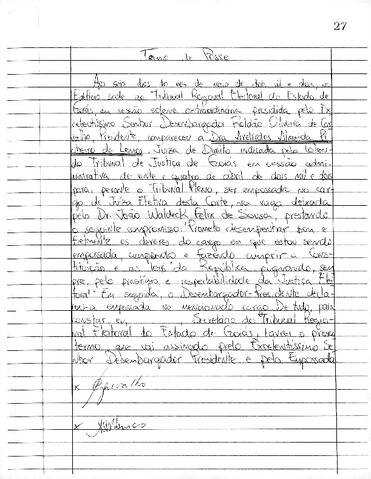 27
Termo de Posse
Ao seis dias do mês de maio de dois mil e dois, no
Edifício sede do Tribunal Regional Eleitoral do Estado de
Goiás, em sessão solene extraordinária presidida pelo Ex
celentíssimo Senhor Desembargador Roldão Oliveira de Car
valho, Presidente, compareceu a Dra. Avelirdes Almeida Pi
nheiro de Lemos, Juíza de Direito indicada pelo
do Tribunal de Justiça de Goiás em sessão admi
nistrativa de vinte e quatro de abril de dois mil e dois
para, perante o Tribunal Pleno, ser empossada no car
go de Juíza Efetiva desta Corte, na vaga deixada
pelo Dr. João Waldeck Felix de Sousa, prestando
o seguinte compromisso: "Prometo desempenhar bem e
fielmente os deveres do cargo em que estou sendo
empossada, cumprindo e fazendo cumprir a Cons
tituição e as leis da República pugnando, sem
pre, pelo prestígio e respeitabilidade da Justiça Elei
toral". Em seguida, o Desembargador-Presidente decla
rou-a empossada no mencionado cargo. De tudo, para
constar, eu, Secretário do Tribunal Regio
nal Eleitoral do Estado de Goiás, lavrei o presen
termo, que vai assinado pelo Excelentíssimo Se
nhor Desembargador Presidente e pela Empossada
x
x